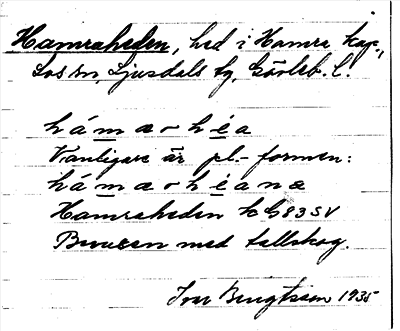 Hamraheden, hed i Hamra kap.,
Los sn, Ljusdals tg, Gävleb. l.
hámæ-héa
Vanligare är pl.-formen:
hámæ-héanæ
Hamraheden to G83SV
Bevuxen med tallskog.
Ivar Bengtsson 1935